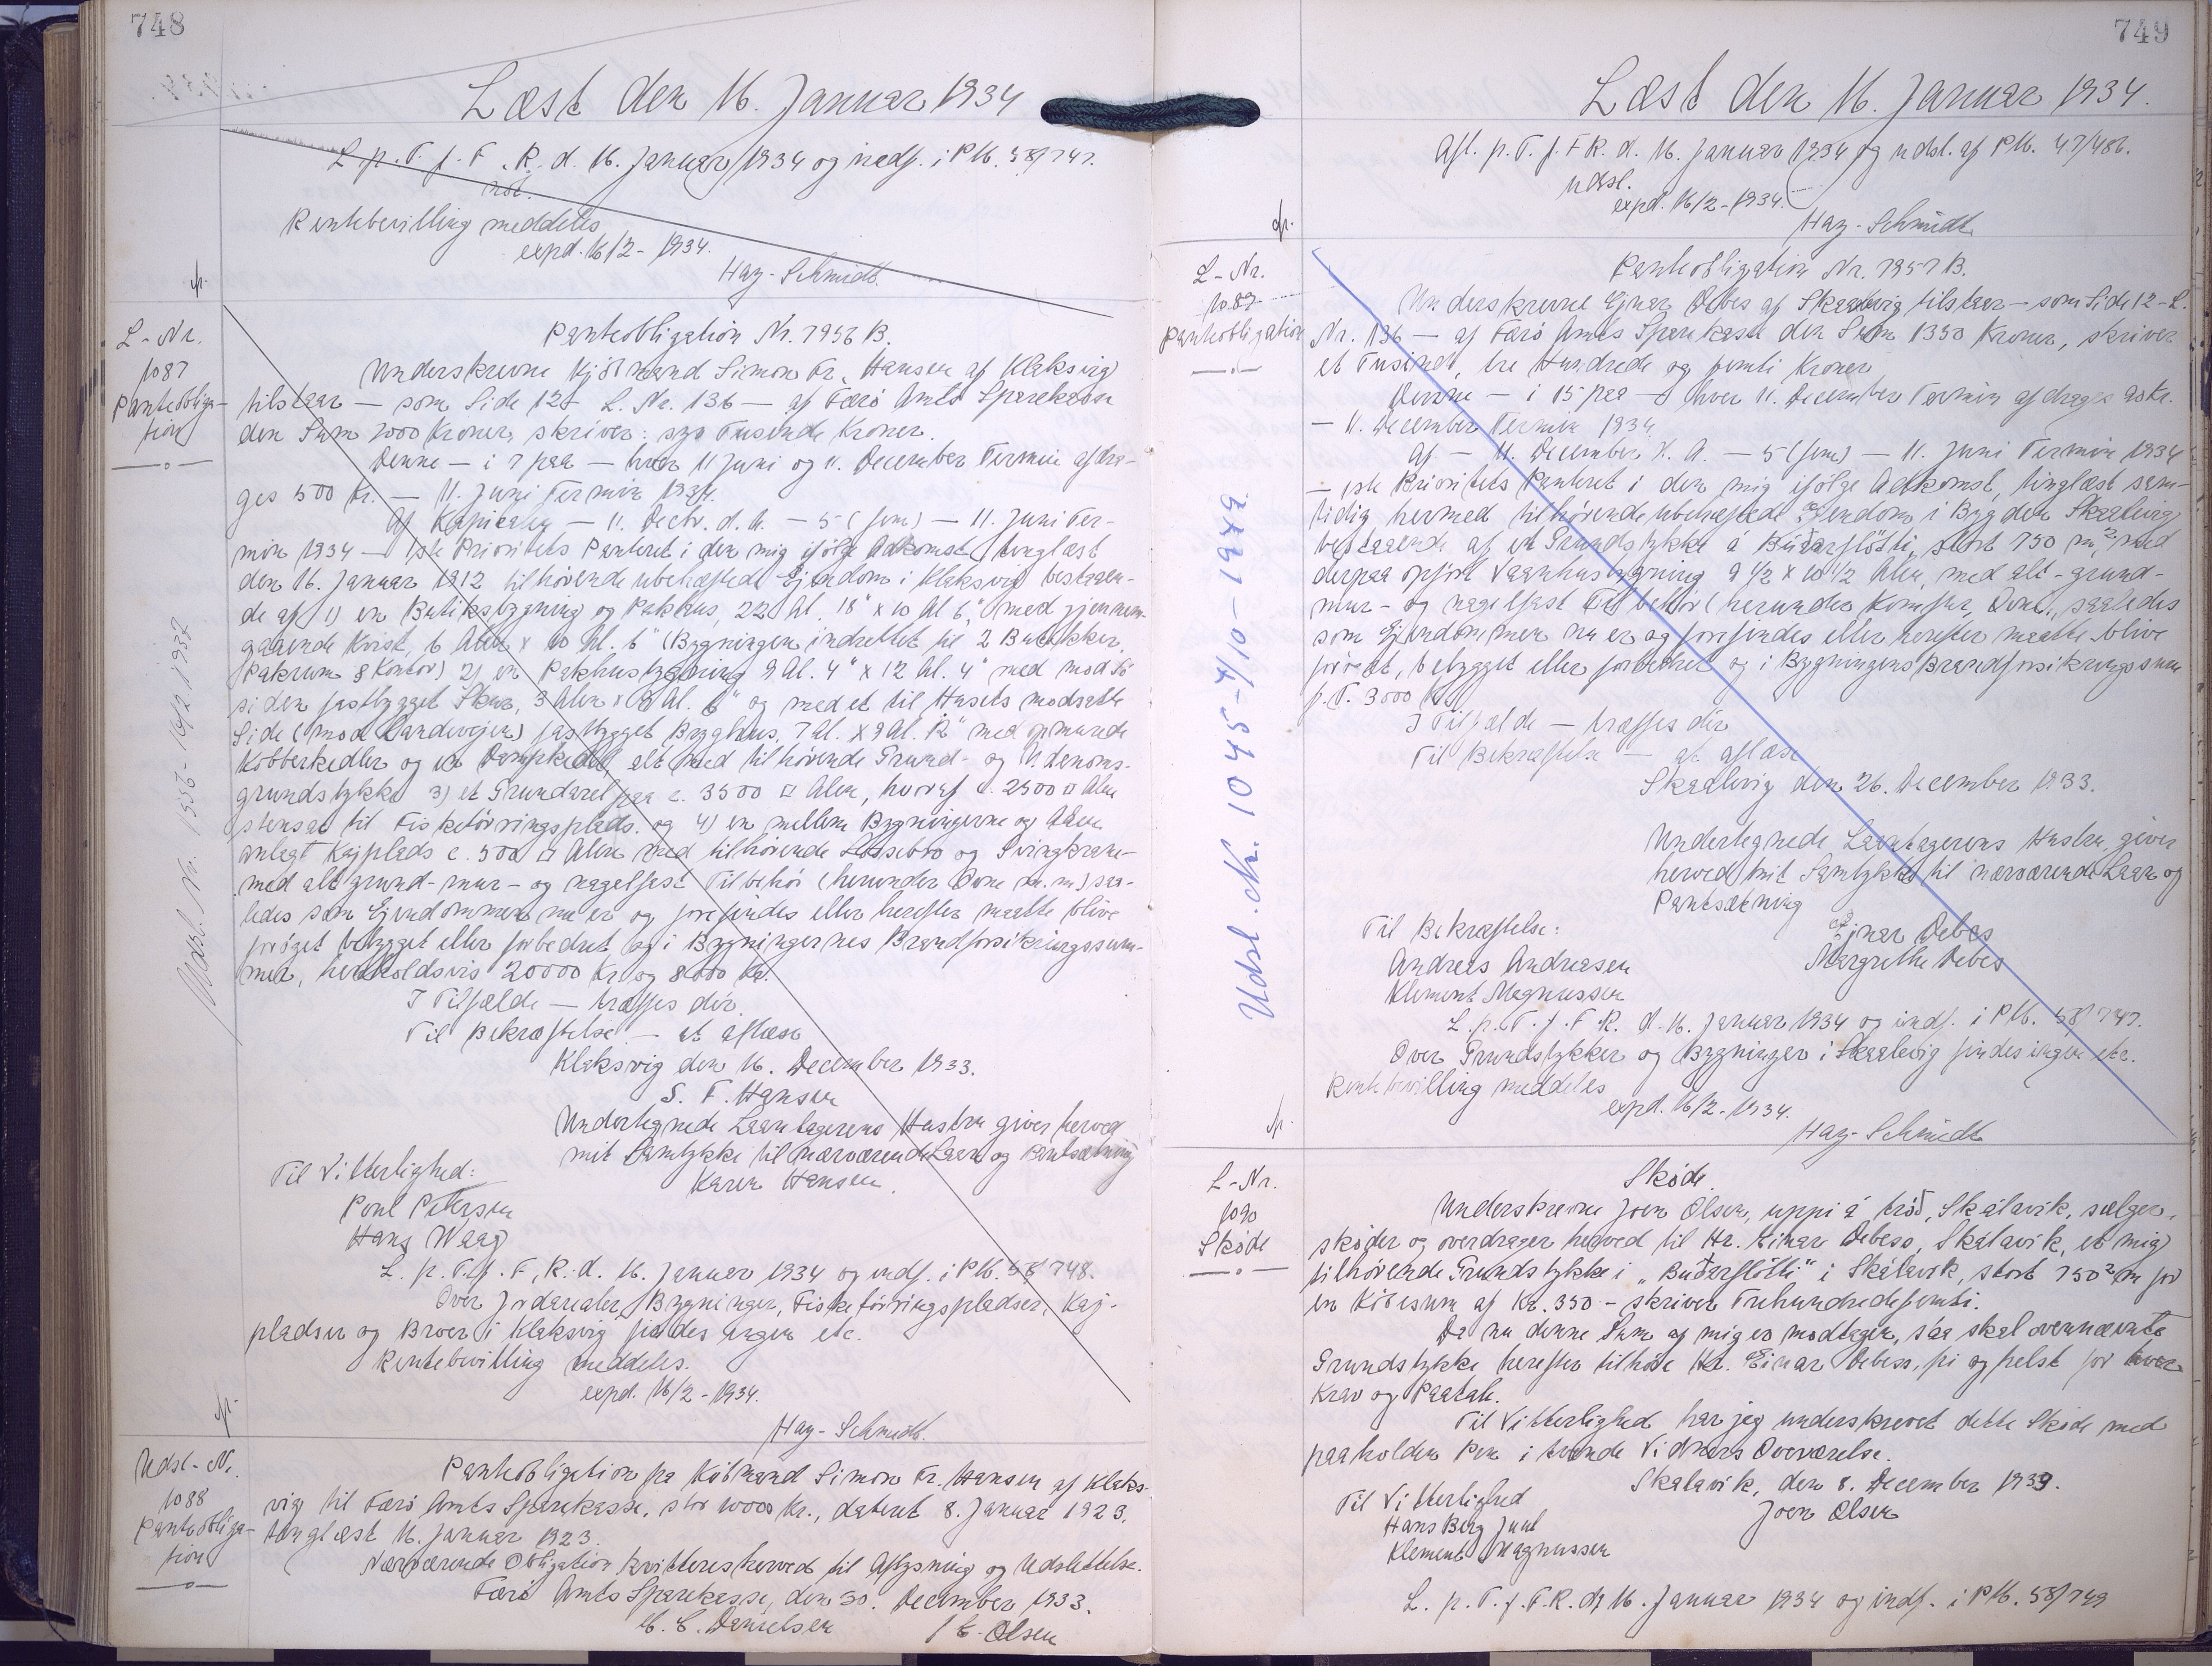 748
Læst den 16. Januar 1934
L. p. T. f. F. R. d. 16. Januar 1934 og indf. i PM. 58/747.
not.
Rentebevilling meddeles
expd. 16/2 - 1934.
Hay-Schmidt.
L-Nr.
1087
Panteobliga-
tion
Panteobligation Nr. 7956 B.
Underskrevne Kjøbmand Simon Fr. Hansen af Klaksvig
tilstaar — som Side 12 L. Nr. 136 — af Færø Amts Sparekasse
den Sum 7000 Kroner, skriver: syv Tusende Kroner.
Denne — i 7 paa — hver 11 Juni og 11. December Termin afdra-
ges 500 Kr. — 11. Juni Termin 1934.
Af Kapitalen — 11. Decbr. d. A. — 5 (fem) — 11. Juni Ter-
min 1934 — 1ste Prioritets Panteret i den mig ifølge Adkomst, tinglæst
den 16. Januar 1912 tilhørende ubehæftede Ejendom i Klaksvig bestaaen-
de af 1) en Butiksbygning og Pakhus, 22 Al. 18" x 10 Al 6", med gjennem-
gaaende Kvist, 6 Alen x 10 Al. 6" (Bygningen indrettet til 2 Butikker,
Pakrum & Kontor) 2) en Pakhusbygning 9 Al. 4" x 12 Al. 4" med mod Sø
siden fastbygget Skur, 3 Alen x 8 Al. 6" og med et til Husets modsatte
Side (mod Landevejen) fastbygget Bryghus, 7 Al. x 9 Al. 12" med opmurede
Kobberkedler og en Dampkedel, alt med tilhørende Grund- og Udenoms-
grundstykke 3) et Grundareal paa c. 3500 □ Alen, hvoraf c. 2500 □ Alen
stensat til Fisketørringsplads. og 4) en mellem Bygningerne og Aaen
anlagt Kajplads c. 500 □ Alen med tilhørende Lossebro og Svingkrane-
med alt grund- mur- og nagelfast Tilbehør (herunder Ovne m. m) saa-
ledes som Ejendommen nu er og forefindes eller herefter maatte blive
forøget bebygget eller forbedret og i Bygningernes Brandforsikringssum-
mer, henholdsvis 20000 Kr og 8000 Kr.
I Tilfælde — træffes dér.
Til Bekræftelse — at aflæse
Klaksvig den 16. December 1933.
S. F. Hansen
Undertegnede Laantagerens Hustru giver herved
mit Samtykke til nærværende Laan og Pantsætning
Karen Hansen.
Til Vitterlighed:
Poul Petersen
Hans Waag
L. p. T. f. F. R. d. 16. Januar 1934 og indf. i PM. 58/748.
Over Jordarealer, Bygninger, Fisketørringspladser, Kaj-
pladser og Broer i Klaksvig findes ingen etc.
Rentebevilling meddeles.
expd. 16/2 - 1934.
Hay-Schmidt.
Udsl. Nr. 1556 - 16/2 1937
Udsl-Nr.
1088
Panteobliga-
tion
Panteobligation fra Købmand Simon Fr. Hansen af Klaks-
vig til Færø Amts Sparekasse, stor 10000 Kr., dateret 8. Januar 1923,
tinglæst 16. Januar 1923.
Nærværende Obligation kvitteres herved til Aflysning og Udslettelse.
Færø Amts Sparekasse, den 30. December 1933.
M. C. Danielsen
J C. Olsen
749
Læst den 16. Januar 1934.
Afl. p. T. f. F R. d. 16. Januar 1934 og udsl. af PM. 47/486.
udsl.
expd. 16/2 - 1934.
Hay-Schmidt.
L-Nr.
1089
Panteobligation
Panteobligation Nr. 7957 B.
Underskrevne Ejnar Debes af Skaalevig tilstaar — som Side 12 - L.
Nr. 136 — af Færø Amts Sparekasse den Sum 1350 Kroner, skriver
et Tusende, tre Hundrede og femti Kroner
Denne — i 15 paa — hver 11. December Termin afdrages 90 Kr.
— 11. December Termin 1934.
Af — 11. December d. A. — 5 (fem) — 11. Juni Termin 1934
— 1ste Prioritets Panteret i den mig ifølge Adkomst, tinglæst sam-
tidig hermed tilhørende ubehæftede Ejendom i Bygden Skaalevig
bestaaende af et Grundstykke á Búðarfløtti, stort 750 m², med
derpaa opført Vaaningshusbygning 9 1/2 x 10 1/2 Alen, med alt - grund-
mur- og nagelfast Tilbehør (herunder Komfur, Ovne, saaledes
som Ejendommen nu er og forefindes eller herefter maatte blive
forøget, bebygget eller forbedret og i Bygningens Brandforsikringssum
p. T. 3000 Kr.
I Tilfælde — træffes dér
Til Bekræftelse — at aflæse
Skaalevig den 26. December 1933.
Undertegnede Laantagerens Hustru, giver
herved mit Samtykke til nærværende Laan og
Pantsætning
Til Bekræftelse:
Ejnar Debes
Andreas Andreasen
Margrethe Debes
Klement Magnussen
L. p. T. f. F R. d. 16. Januar 1934 og indf. i PM. 58/749.
Over Grundstykker og Bygninger i Skaalevig findes ingen etc.
Rentebevilling meddeles
expd. 16/2 - 1934.
Hay-Schmidt
Udsl. Nr. 1045 - 4/10 - 1949
L-Nr.
1090
Skøde
Skøde.
Underskrevne Joen Olsen, uppi á trøð, Skálavik, sælger,
skøder og overdrager herved til Hr. Einar Debess, Skálavik, et mig
tilhørende Grundstykke i „Búðarfløtti" i Skálavik, stort 750² m for
en Købesum af Kr. 350 - skriver Trehundredefemti.
Da nu denne Sum af mig er modtagen, saa skal ovennævnte
Grundstykke herefter tilhøre Hr. Einar Debess, fri og frelst for hver
Krav og Paatale.
Til Vitterlighed har jeg underskrevet dette Skøde med
paaholden Pen i tvende Vidners Overværelse.
Skalavik, den 8. December 1933.
Til Vitterlighed
Joen Olsen
Hans Berg Juul
Klement Magnussen
L. p. T. f. F. R. d. 16. Januar 1934 og indf. i PM. 58/749